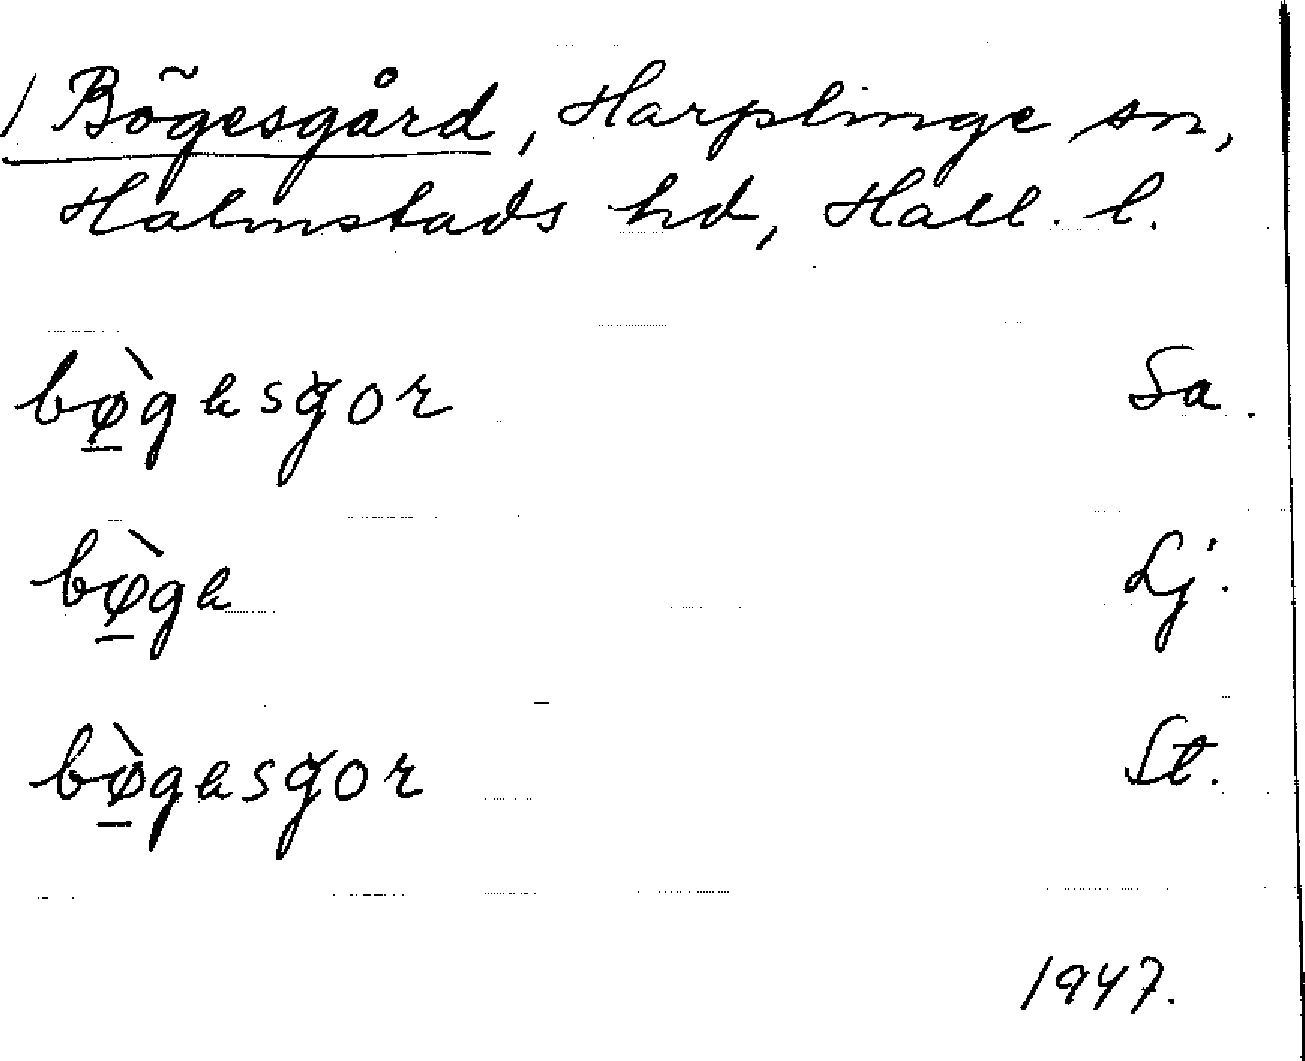 1 Bögesgård, Harplinge sn,
Halmstads hd, Hall. l.
bø̱̀gəsgor Sa.
bø̱̀gə Lj.
bø̱̀gəsgor St.
1947.